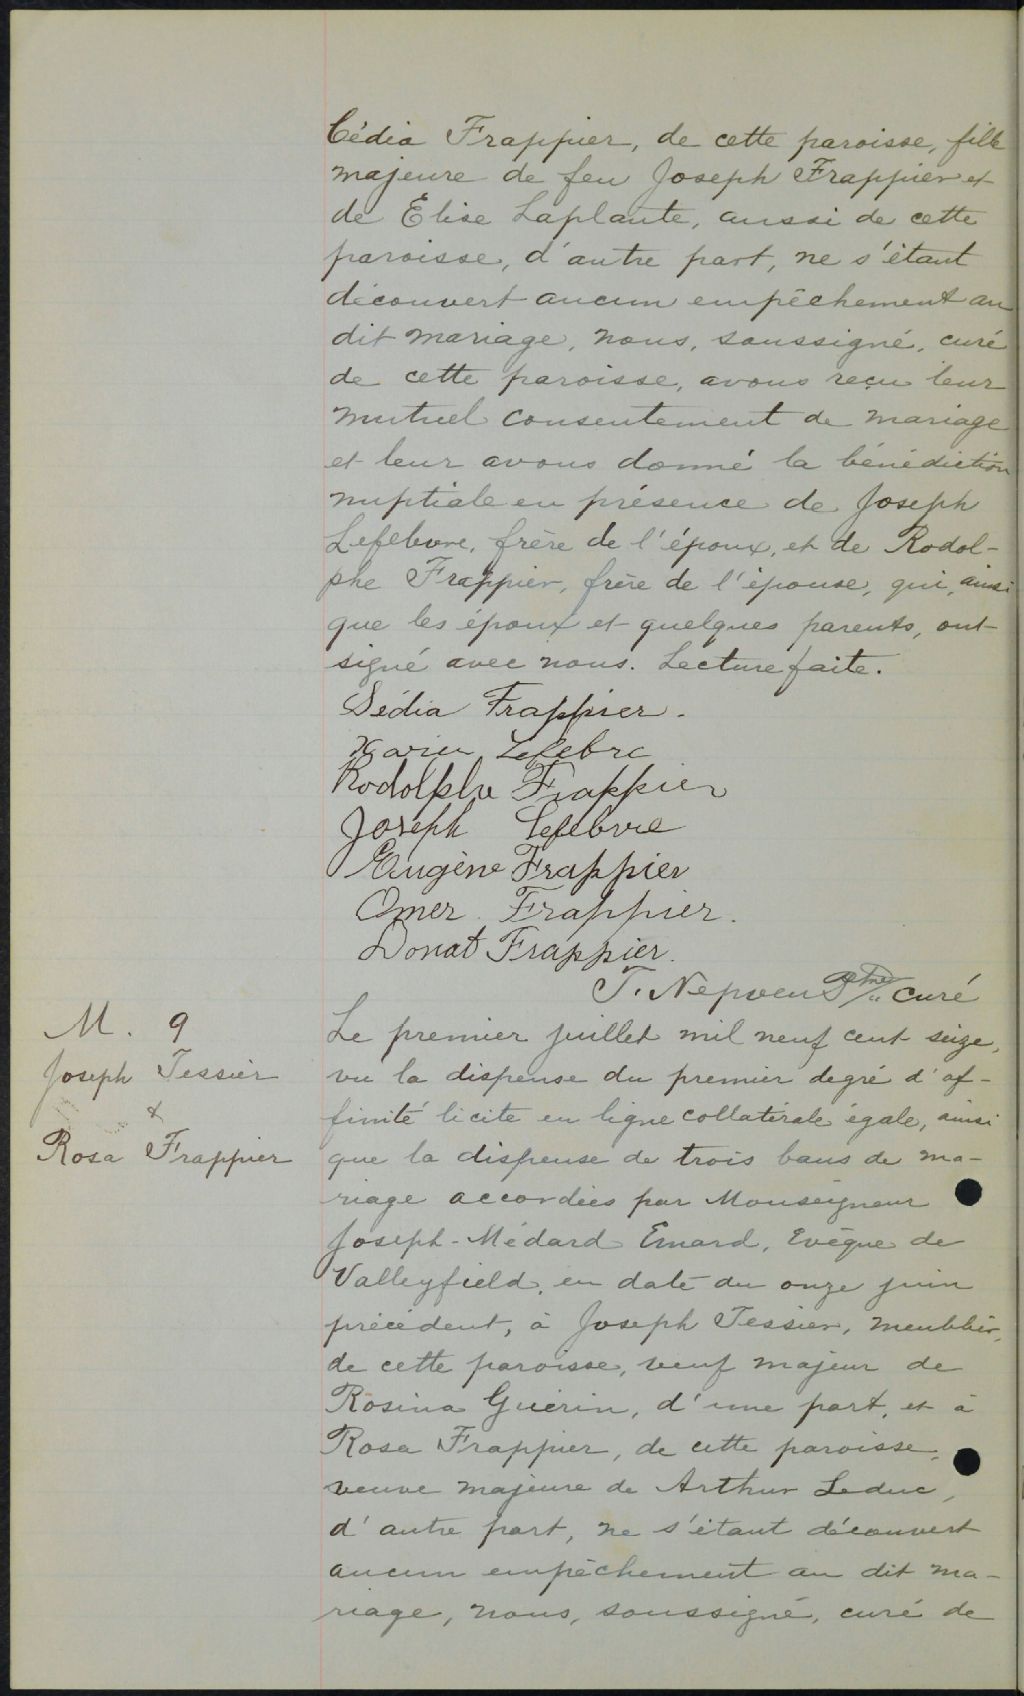 Cédia Frappier, de cette paroisse, fille
majeure de feu Joseph Frappier et
de Elise Laplante, aussi de cette
paroisse, d'autre part, ne s'étant
découvert aucun empêchement au
dit mariage, nous, soussigné, curé
de cette paroisse, avons reçu leur
mutuel consentement de mariage
et leur avons donné la bénédiction
nuptiale en présence de Joseph
Lefebvre, frère de l'époux, et de Rodol-
phe Frappier, frère de l'épouse, qui, ainsi
que les époux et quelques parents, ont
signé avec nous. Lecture faite.
Sédia Frappier.
Xavier Lefebre
Rodolphe Frappier
Joseph Lefebvre
Eugène Frappier
Omer Frappier.
Donat Frappier.
T. Nepveu Ptre curé
M. 9
Joseph Tessier
&
Rosa Frappier
Le premier juillet mil neuf cent seize,
vu la dispense du premier degré d'af-
finité licite en ligne collatérale égale, ainsi
que la dispense de trois bans de ma-
riage accordées par Monseigneur
Joseph-Médard Emard, Evêque de
Valleyfield, en date du onze juin
précédent, à Joseph Tessier, meublier,
de cette paroisse, veuf majeur de
Rosina Guérin, d'une part, et à
Rosa Frappier, de cette paroisse,
veuve majeure de Arthur Leduc,
d'autre part, ne s'étant découvert
aucun empêchement au dit ma-
riage, nous, soussigné, curé de